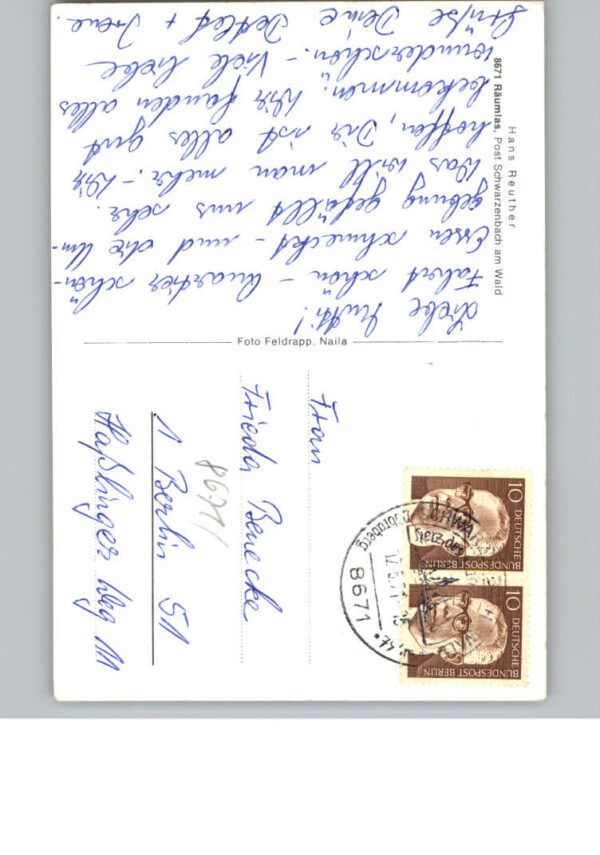 Liebe Mutti!
Fahrt schön - Quartier schön -
Essen schmeckt - und die Um-
gebung gefällt uns sehr.
Was will man mehr. - Wir
hoffen, Dir ist alles gut
bekommen. Wir fanden alles
wunderschön. - Viele liebe
Grüße Deine Detlef + Irene
Hans Reuther
8671 Räumlas, Post Schwarzenbach am Wald
Foto Feldrapp, Naila
Frau
Frieda Benecke
1 Berlin 51
Haßlinger Weg 111
8671
10 DEUTSCHE
BUNDESPOST BERLIN
10 DEUTSCHE
BUNDESPOST BERLIN
8671